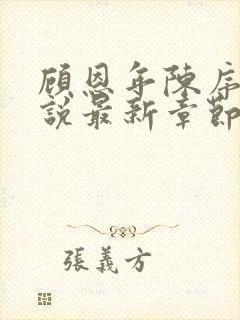 顾恩年陈序
說最新章節
張義方